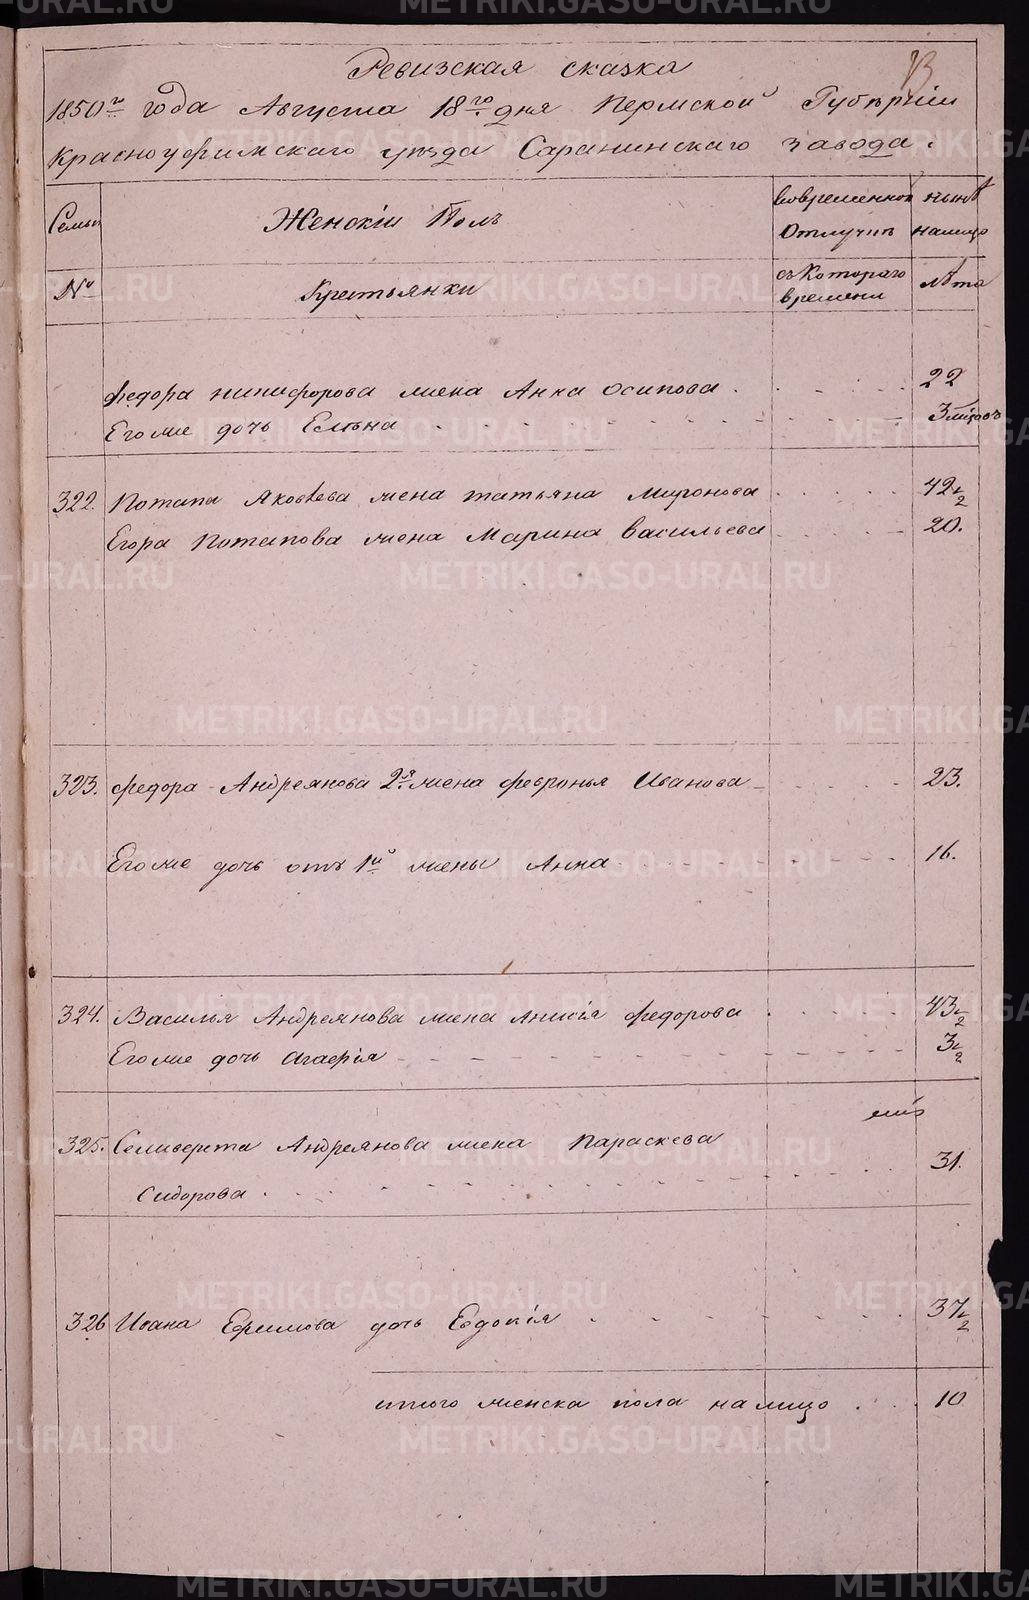 Ревизская сказка
1850го года Августа 18го дня Пермской Губерніи
Красноуфимскаго уезда Саранинскаго завода.
Семьи Женскій Полъ вовременной отлучке ныне налицо
№ Крестьянки съ котораго времени лѣта
Федора никифорова жена Анна Осипова 22
Его же дочь Елена 3 мѣсяцовъ
322. Потапа Яковлева жена татьяна Миронова 42½
Егора Потапова жена Марина Васильева 20.
323. Федора Андреянова 2я жена Февронья Иванова 23.
Его же дочь отъ 1й жены Анна 16.
324. Василья Андреянова жена Анисія Федорова 43½
Его же дочь Агафія 3½
325. Селиверста Андреянова жена Параскева
Сидорова 31.
326 Ивана Ефимова дочь Евдокія 37½
итого женска пола налицо 10
METRIKI.GASO-URAL.RU